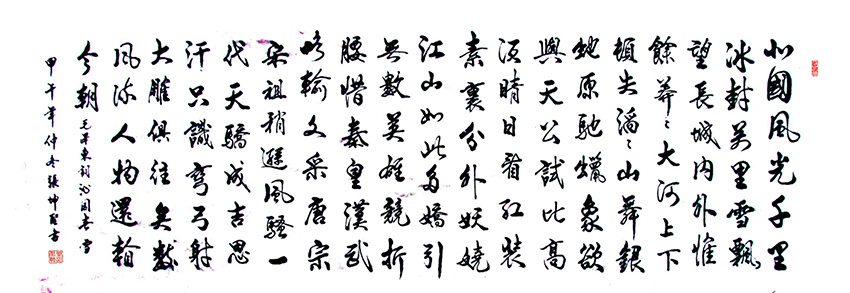 北國風光千里
冰封万里雪飄
望長城内外惟
餘莽々大河上下
頓失滔々山舞銀
蛇原馳蠟象欲
與天公試比高
須晴日看紅裝
素裹分外妖嬈
江山如此多嬌引
無數英雄競折
腰惜秦皇漢武
略輸文采唐宗
宋祖稍遜風騷一
代天驕成吉思
汗只識彎弓射
大雕俱往矣數
風流人物還看
今朝 毛澤東詞沁園春雪
甲午年仲冬張仲書